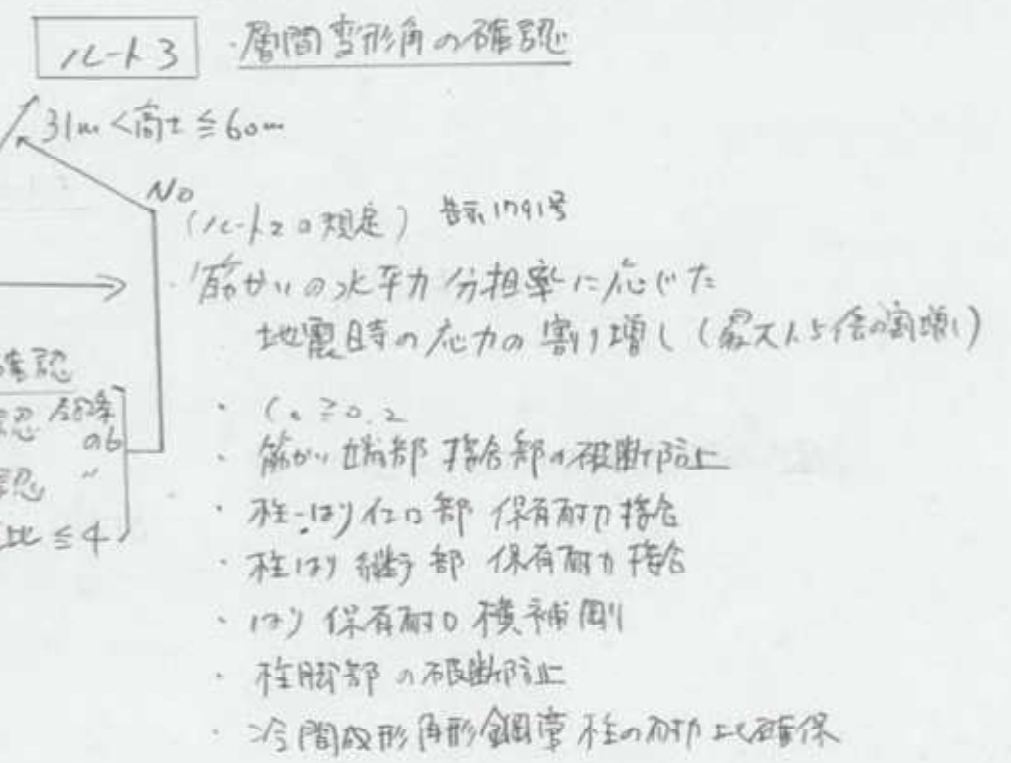 ルート3 ・層間変形角の確認
31m<高さ≦60m
NO
(ルート2の規定) 告示1791号
・筋かいの水平力分担率に応じた
地震時の応力の割り増し(最大1.5倍の割増し)
確認
・C₀≧0.2
認 の6
・筋かい端部 接合部の破断防止
認 〃
・柱-はり仕口部 保有耐力接合
比≦4
・柱はり継手部 保有耐力接合
・はり 保有耐力横補剛
・柱脚部の破断防止
・冷間成形角形鋼管柱の耐力比確保